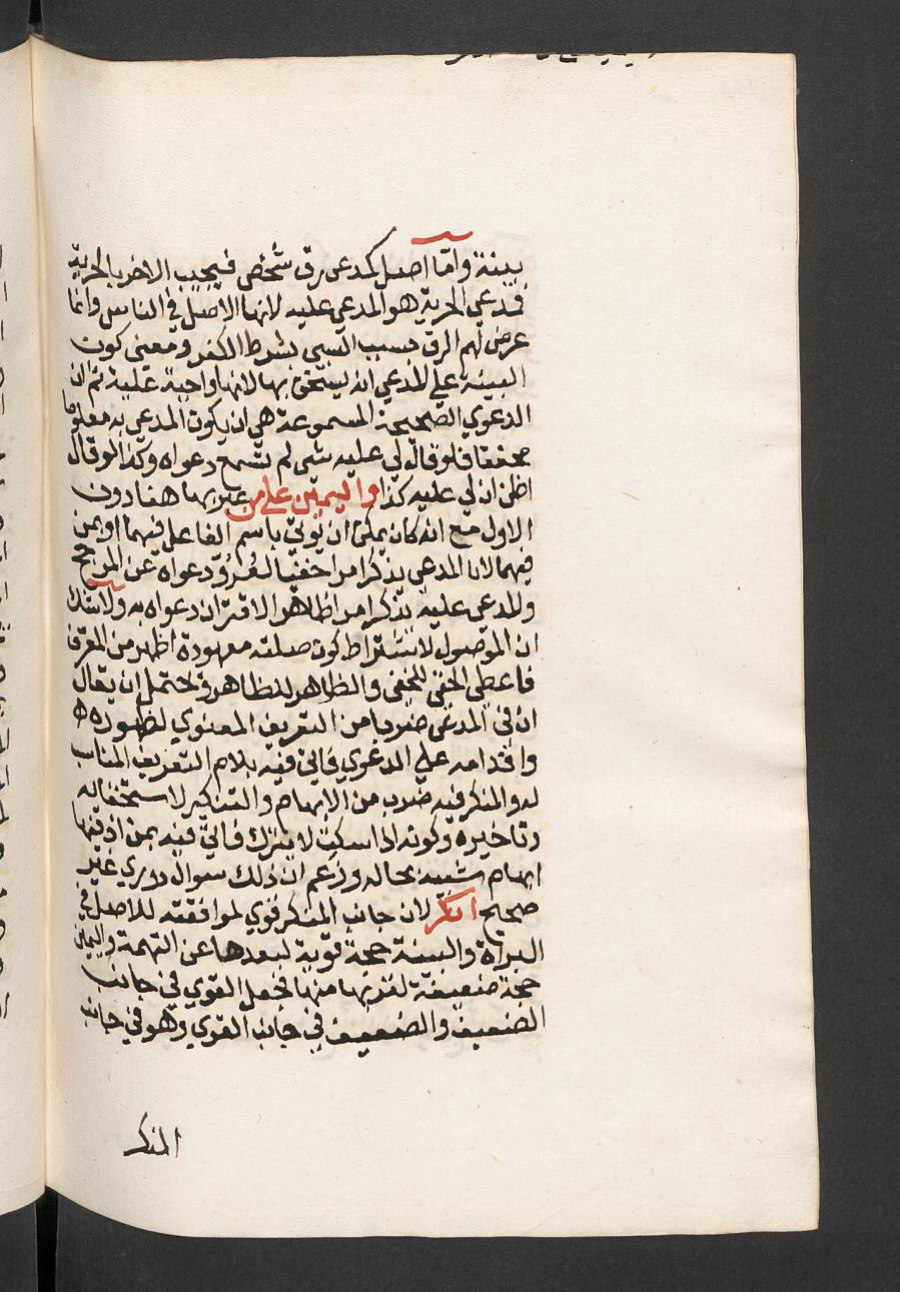 بينة واما اصل كمدعى رق شخص فيجيب الاخر بالحرية
فمدعي الحرية هو المدعي عليه لانها الاصل في الناس وانما
عرض لهم الرق بسبب السبي بشرط الكفر ومعنى كون
البينة علي المدعي انه يستحق بها لانها واجبة عليه ثم ان
الدعوي الصحيحة المسموعة هي ان يكون المدعى به معلوما
محققا فلو قال لي عليه شى لم تسمع دعواه وكذا لو قال
اظن ان لي عليه كذا واليمين على من عبر بها هنا دون
الاول مع انه كان يمكن ان يوتي باسم الفاعل فيهما او بمن
فيهما لان المدعي يذكر امرا خفيا لعرو دعواه عن المرجح
والمدعى عليه يذكر امرا ظاهرا لاقتران دعواه به ولا شك
ان الموصول لاشتراط كون صلته معهودة اظهر من المعرف
فاعطي الخفي للخفى والظاهر للظاهر ويحتمل ان يقال
ان في المدعى ضربا من التعريف المعنوي لظهوره
واقدامه علي الدعوي فاتى فيه بلام التعريف المناسب
له والمنكر فيه ضرب من الابهام والتنكير لاستخفائه
وتاخيره وكونه اذا سكت لا يترك فاتي فيه بمن اذ فيها
ابهام شبيه بحاله وزعم ان ذلك سوال دوري غير
صحيح انكر لان جانب المنكر قوي لموافقته للاصل في
البراة والبينة حجة قوية لبعدها عن التهمة واليمين
حجة ضعيفة لقربها منها فجعل القوي في جانب
الضعيف والضعيف في جانب القوي وهو في جانب
المنكر